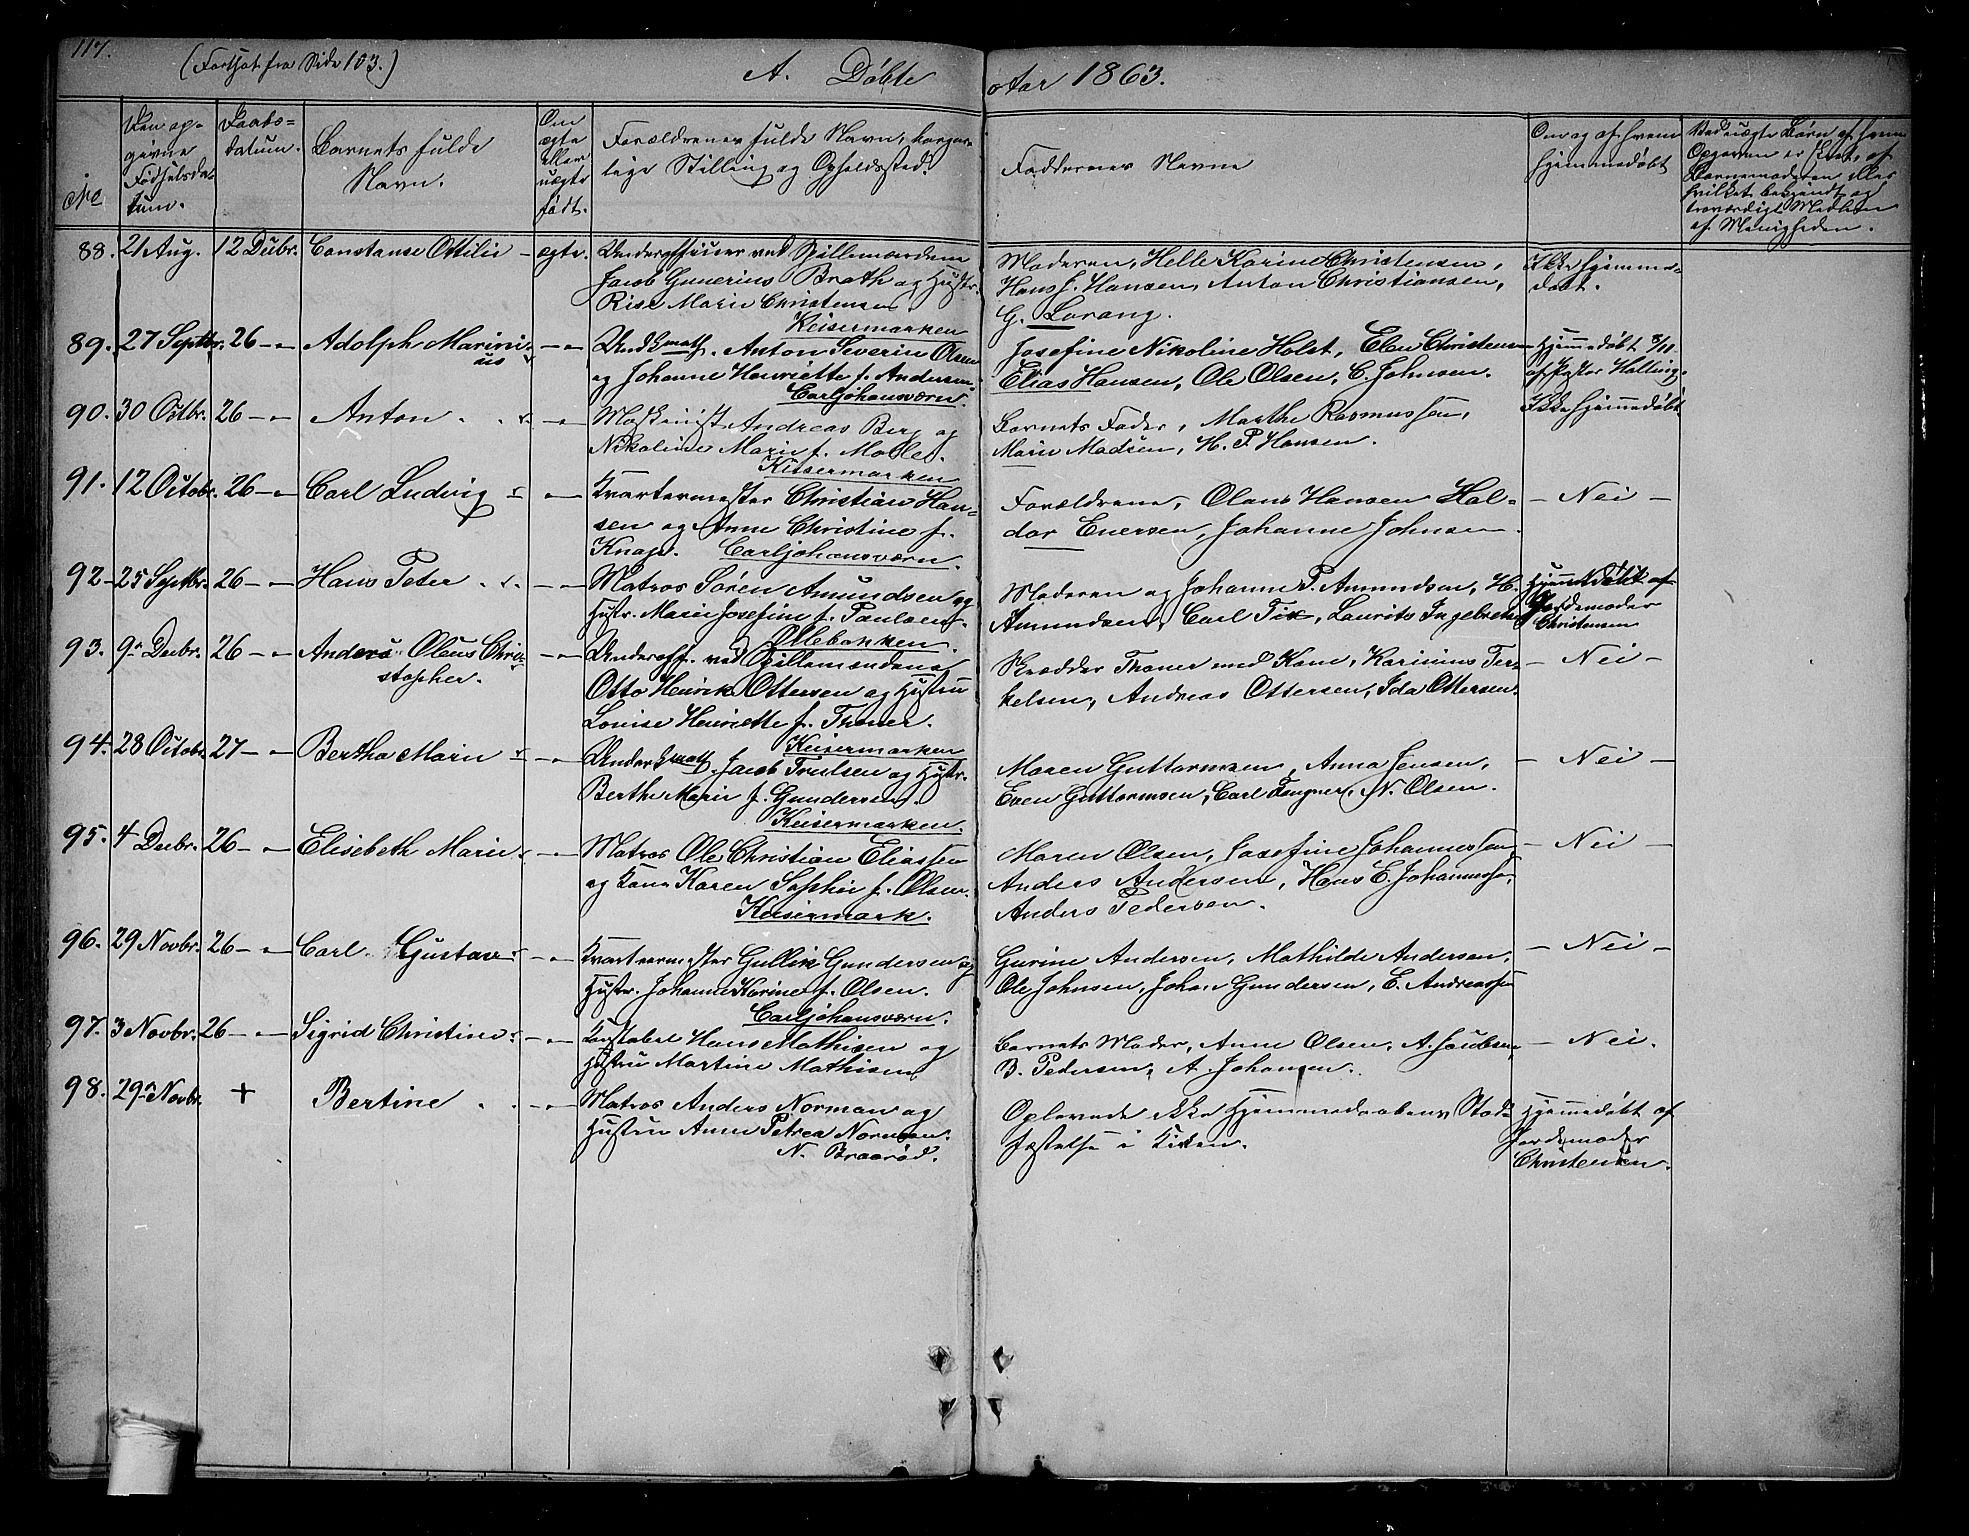 117.
(Fortsat fra Side 103.)
A. Døbte
Aar 1863.
No
Den op-
givne
Fødselsda-
tum.
Daabs-
datum.
Barnets fulde
Navn.
Om
ægte
eller
uægte
født.
Forældrenes fulde Navn, borger-
lige Stilling og Opholdssted.
Faddernes Navne
Om og af hvem
hjemmedøbt
Ved uægte Børn af hvem
Opgaven er skeet, af
Barnemoderen eller
hvilket bekjendt og
troværdigt Medlem
af Menigheden.
88. 21 Aug. 12 Decbr. Constanse Ottilie - ægte. Underofficier ved Spillemændene
Jacob Gunerius Brath og Hustr.
Rise Marie Christensen
Keisermarken
Moderen, Helle Karine Christensen,
Hans J. Hansen, Anton Christiansen,
G. Lorang.
Ikke hjemme-
døbt.
89. 27 Septbr. 26 - " Adolph Marini-
us - " - Anton Severin Olsen
og Johanne Henriette f. Andersen
Carljohansværn.
Josefine Nikoline Holst, Elen Christensen
Elias Hansen, Ole Olsen, C. Johnsen.
Hjemmedøbt
af Pastor Halling.
90. 30 Octbr. 26 - " Anton - " - Maskinist Andreas Berg og
Nikoline Marie f. Moble.
Keisermarken
Barnets Fader, Marthe Rasmussen,
Marie Madsen, H. P. Hansen.
Ikke hjemmedøbt
91. 12 Octobr. 26 - " Carl Ludvig - " - Kvartermester Christian Han-
sen og Anne Christine f.
Knap. Carljohansværn.
Forældrene, Olaus Hansen Hal-
dor Enersen, Johanne Johnsen.
- Nei -
92 - 25 Septbr. 26 - " Hans Peter - " - Matros Søren Amundsen og
Hustr. Marie Josefine f. Paulsen.
Ollebakken.
Moderen og Johanne P. Amundsen, H.
Amundsen, Carl Fix, Laurits Ingebretsen
Hjemmedøbt af
Jordemoder
Christensen
93. 9 Decbr. 26 - " Anders Oleus Chri-
stopher. - " - Underoff. ved Spillemændene
Otto Henrik Ottersen og Hustru
Louise Henriette f. Thoner.
Keisermarken
Skrædder Thoner med Kone, Karinius Ter-
kelsen, Andreas Ottersen, Ida Ottersen.
- Nei -
94. 28 Octobr. 27 - " Bertha Marie - " - Jacob Trulsen og Hustr.
Berthe Marie f. Gundersen.
Keisermarken.
Maren Guttormsen, Anna Jensen,
Even Guttormsen, Carl Fangner, N. Olsen.
- Nei -
95. 4 Decbr. 26 - " Elisebeth Marie - " - Matros Ole Christian Eliassen
og Kone Karen Sophie f. Olsen.
Keisermark.
Maren Olsen, Josefine Johannessen
Anders Andersen, Hans E. Johannessen,
Anders Pedersen.
- Nei -
96. 29 Novbr. 26 - " Carl Gustav - " - Kvartermester Gullik Gundersen og
Hustr. Johanne Karine f. Olsen.
Carljohansværn.
Gurine Andersen, Mathilde Andersen,
Ole Johnsen, Johan Gundersen, E. Andreassen
- Nei -
97. 3 Novbr. 26 - " Sigrid Christine - " - Konstabel Hans Mathisen og
Hustru Martine Mathisen
Barnets Moder, Anne Olsen, A. Jacobsen,
B. Pedersen, A. Johansen.
- Nei.
98. 29 Novbr. + Bertine - " - Matros Anders Norman og
Hustru Anne Petrea Norman.
N. Braarød.
Oplevede ikke Hjemmedaabens Stad-
fæstelse i Kirken.
Hjemmedøbt af
Jordemoder
Christensen.